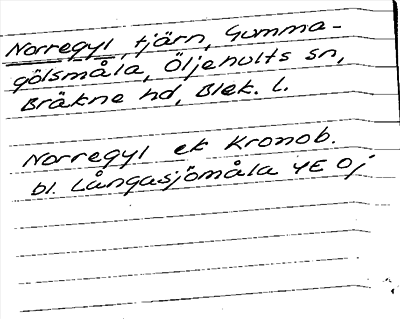 Norregyl, tjärn, Gumma-
gölsmåla, Öljehults sn,
Bräkne hd, Blek. l.
Norregyl ek Kronob.
bl. Långasjömåla 4E Oj